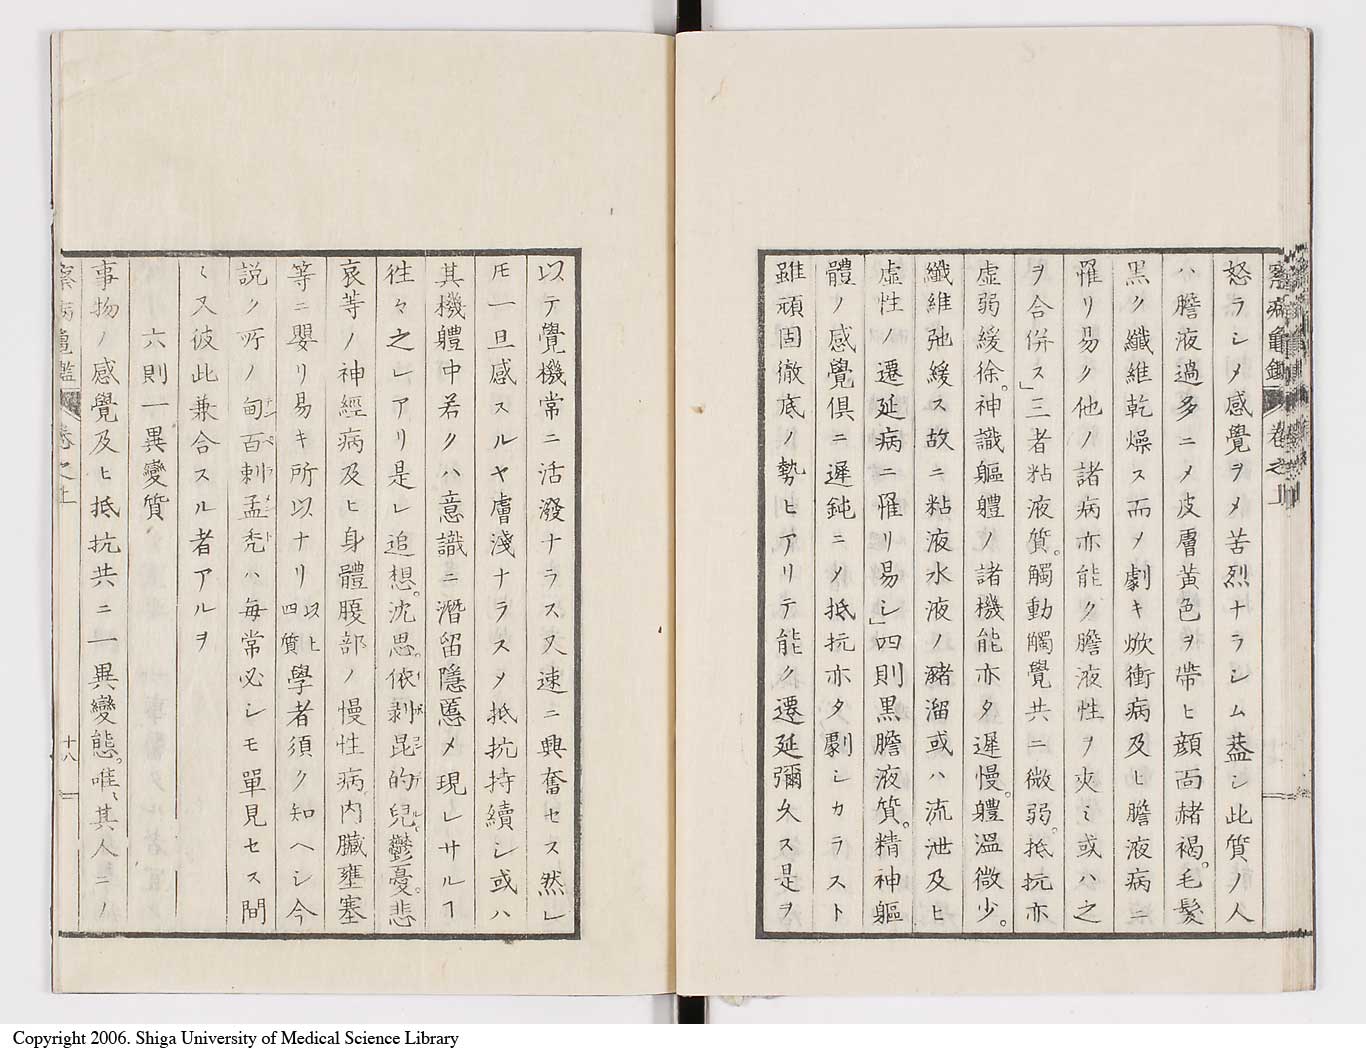 察病龜鑑 卷之上
怒ラシメ感覺ヲメ苦烈ナラシム葢シ此質ノ人
ハ膽液過多ニメ皮膚黄色ヲ帶ヒ顔面赭褐。毛髪
黒ク纖維乾燥ス而ノ劇キ焮衝病及ヒ膽液病ニ
罹リ易ク他ノ諸病亦能ク膽液性ヲ夾ミ或ハ之
ヲ合併ス」三者粘液質。觸動觸覺共ニ微弱。抵抗亦
虚弱緩徐。神識軀體ノ諸機能亦タ遲慢。軆溫微少。
纖維弛緩ス故ニ粘液水液ノ瀦溜或ハ流泄及ヒ
虚性ノ遷延病ニ罹リ易シ」四則黒膽液質。精神軀
體ノ感覺倶ニ遲鈍ニメ抵抗亦タ劇シカラスト
雖頑固徹底ノ勢ヒアリテ能ク遷延彌久ス是ヲ
以テ覺機常ニ活潑ナラス又速ニ興奮セス然」
𪜈一旦感スルヤ膚淺ナラスメ抵抗持續シ或ハ
其機軆中若クハ意識ニ潛留隱慝メ現レサルヿ
徃々之レアリ是レ追想。沈思。依剥昆的兒鬱憂。悲
哀等ノ神經病及ヒ身體腹部ノ慢性病。内臟壅塞
等ニ嬰リ易キ所以ナリ以上四質學者須ク知ヘシ今
説ク所ノ甸百剌孟禿ハ毎常必シモ單見セス間
〻又彼此兼合スル者アルヲ
六則一異變質
事物ノ感覺及ヒ抵抗共ニ一異變態。唯〻其人ニノ
察病龜鑑 卷之上 十八
Copyright 2006. Shiga University of Medical Science Library